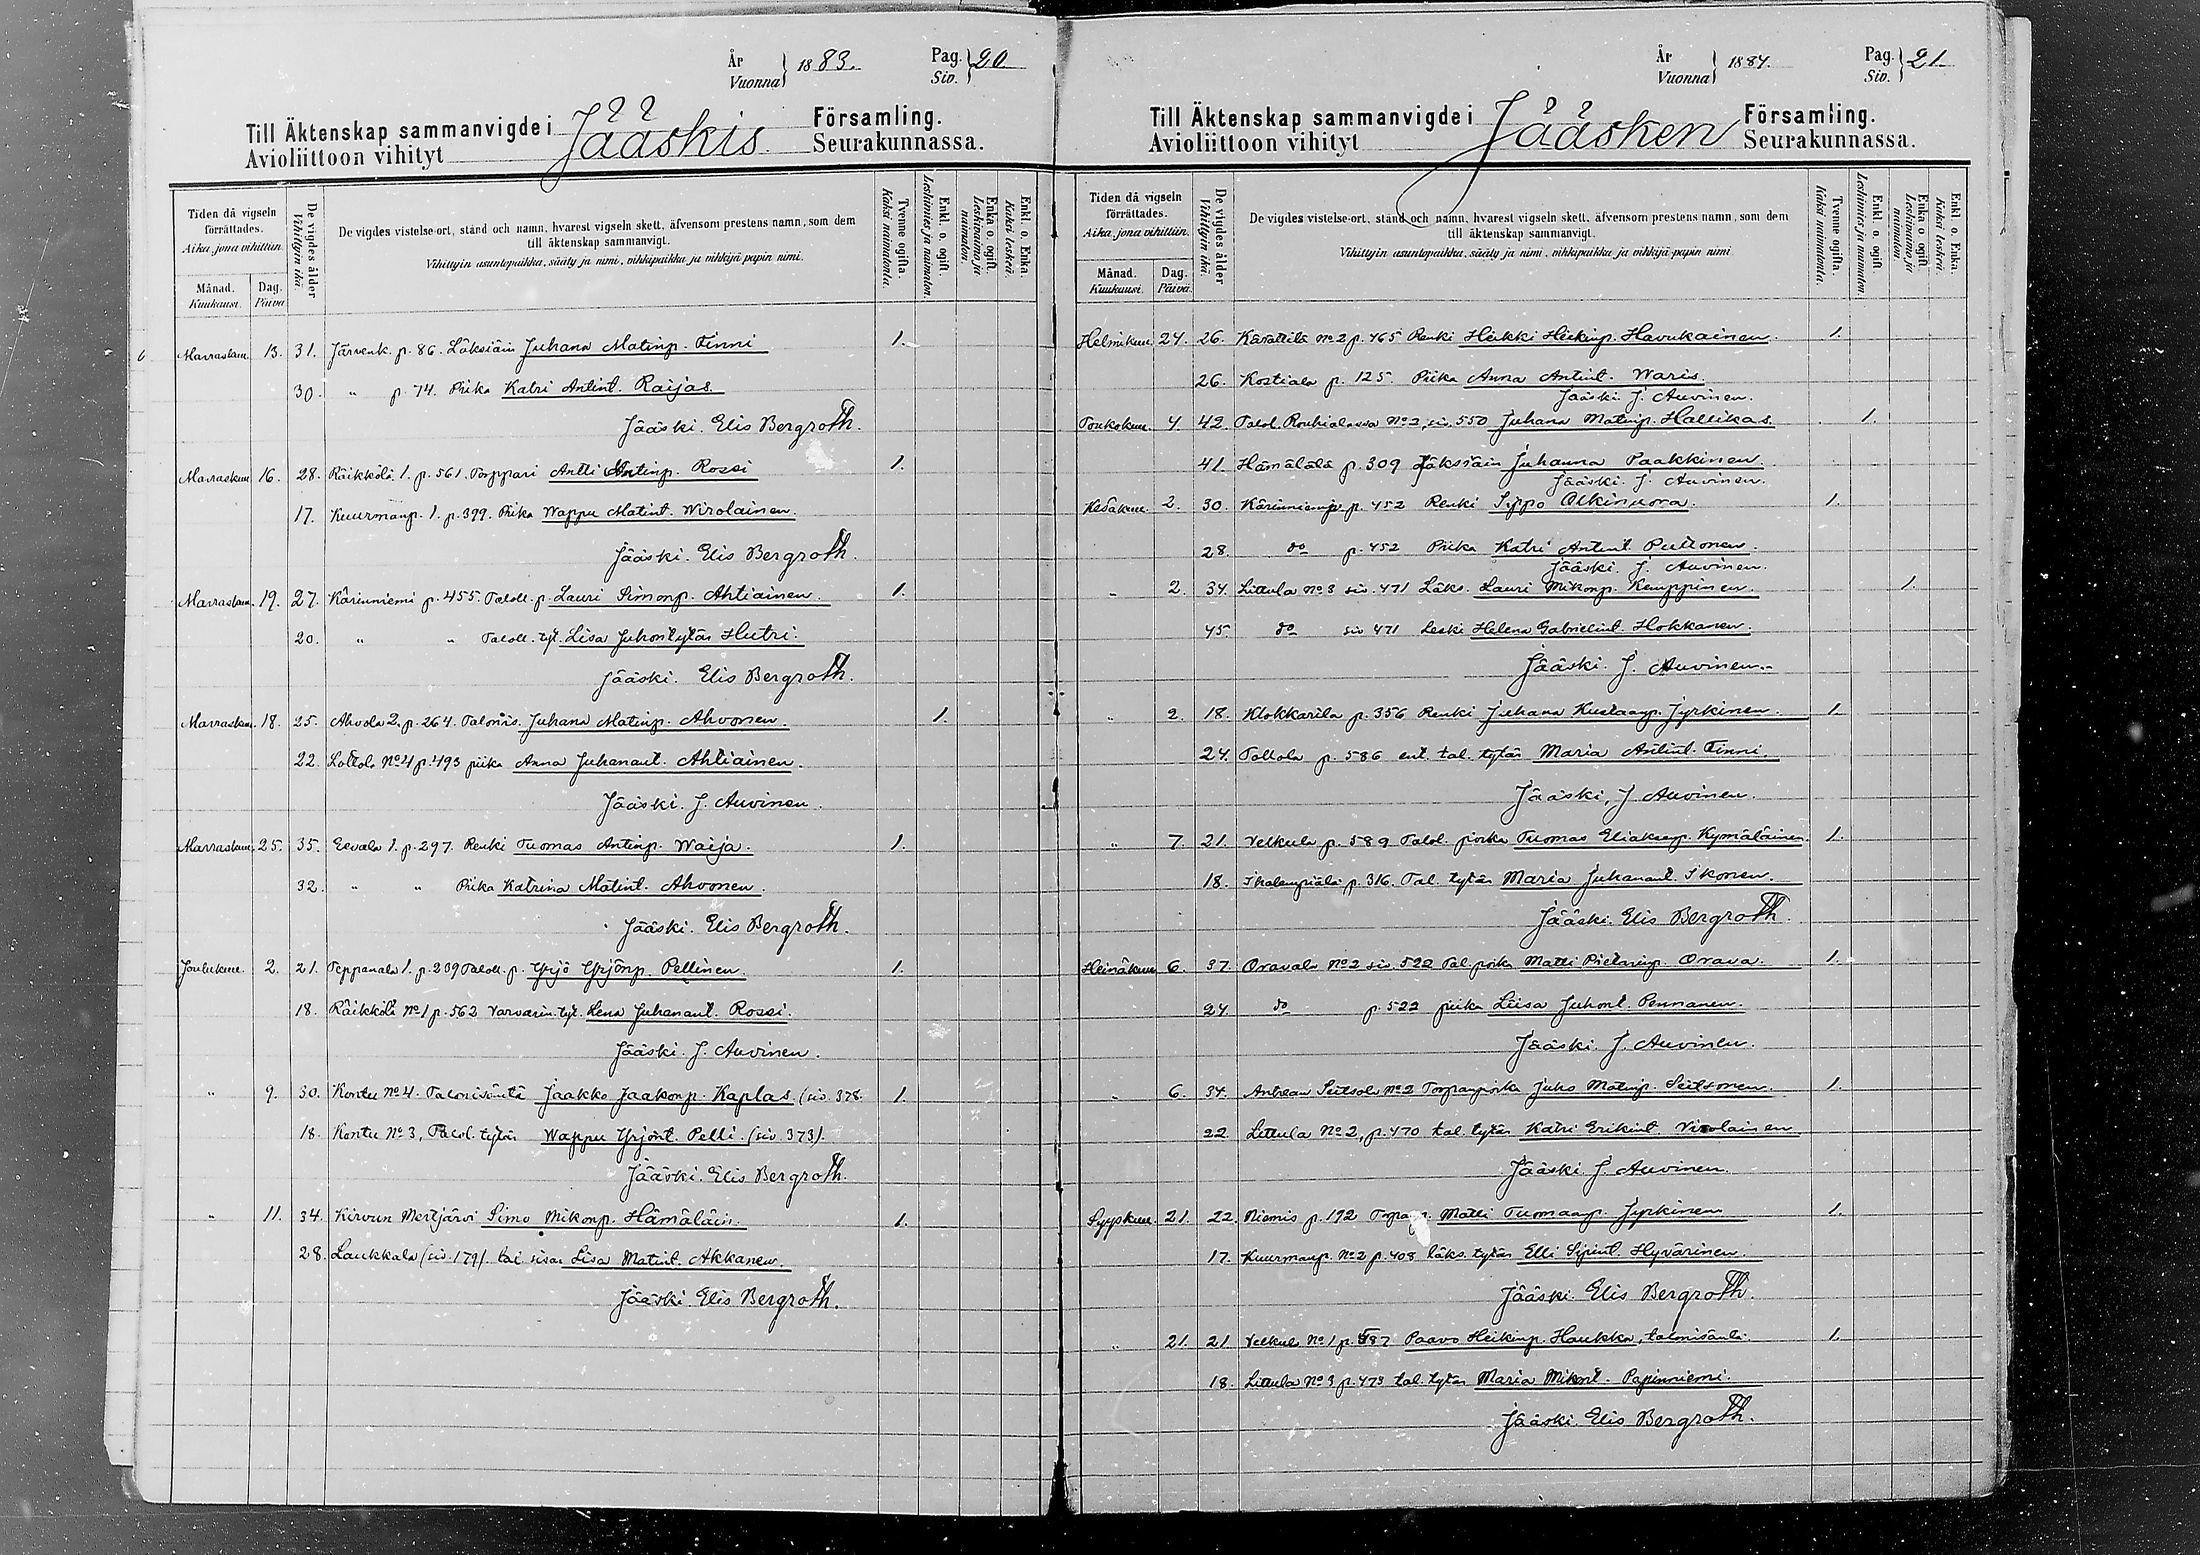 År
Vuonna } 1883.
Pag.
Siv. } 20
Till Äktenskap sammanvigde i Jääskis Församling.
Avioliittoon vihityt Seurakunnassa.
Tiden då vigseln förrättades.
Aika, jona vihittiin.
Månad.
Kuukausi.
Dag.
Päivä.
De vigdes ålder
Vihittyin ikä.
De vigdes vistelse-ort, stånd och namn, hvarest vigseln skett, äfvensom prestens namn, som dem
till äktenskap sammanvigt.
Vihittyin asuntopaikka, sääty ja nimi, vihkipaikka ja vihkijä papin nimi.
Tvenne ogifta.
Kaksi naimatonta.
Enkl. o. ogift.
Leskimies ja naimaton.
Enka o. ogift.
Leskivaimo ja naimaton.
Enkl. o. Enka.
Kaksi leskeä.
Marraskuu 13. 31. Järvenk. p. 86. Läksiäin Juhana Matinp. Finni 1.
30. " p. 74. Piika Katri Antint. Raijas.
Jääski. Elis Bergroth.
Marraskuu 16. 28. Räikkölä. 1. p. 561. Torppari Antti Antinp. Rossi 1.
17. Kuurmanp. 1. p. 399. Piika Wappu Matint. Wirolainen.
Jääski. Elis Bergroth.
Marraskuu 19. 27. Kärinniemi p. 455. Taloll. p. Lauri Simonp. Ahtiainen. 1.
20. " " Taloll. tyt. Lisa Juhontytär Hutri.
Jääski. Elis Bergroth.
Marraskuu 18. 25. Ahvola 2. p. 264. Talonis. Juhana Matinp. Ahvonen. 1.
22. Lottola No 4 p. 493 piika Anna Juhanant. Ahtiainen.
Jääski. J. Auvinen.
Marraskuu 25. 35. Eevala 1. p. 297. Renki Tuomas Antinp. Waija. 1.
32. " " Piika Katrina Matint. Ahvonen.
Jääski. Elis Bergroth.
Joulukuu 2. 21. Teppanala 1. p. 239 Taloll. p. Yrjö Yrjönp. Pellinen. 1.
18. Räikkölä No 1 p. 562 Varvarin. tyt. Lena Juhanant. Rossi.
Jääski. J. Auvinen.
" 9. 30. Kontu No 4. Talonisäntä Jaakko Jaakonp. Kaplas. (siv. 378. 1.
18. Kontu No 3, Talol. tytär Wappu Yrjönt. Pelli. (siv. 373).
Jääski. Elis Bergroth.
" 11. 34. Kirvun Mertjärvi Simo Mikonp. Hämäläin. 1.
28. Laukkala (siv. 179). tal. sisar Lisa Matint. Akkanen.
Jääski. Elis Bergroth.
År
Vuonna } 1884.
Pag.
Siv. } 21
Till Äktenskap sammanvigde i Jääsken Församling.
Avioliittoon vihityt Seurakunnassa.
Tiden då vigseln förrättades.
Aika, jona vihittiin.
Månad.
Kuukausi.
Dag.
Päivä.
De vigdes ålder
Vihittyin ikä.
De vigdes vistelse-ort, stånd och namn, hvarest vigseln skett, äfvensom prestens namn, som dem
till äktenskap sammanvigt.
Vihittyin asuntopaikka, sääty ja nimi, vihkipaikka ja vihkijä papin nimi
Tvenne ogifta.
Kaksi naimatonta.
Enkl. o. ogift.
Leskimies ja naimaton.
Enka o. ogift.
Leskivaimo ja naimaton.
Enkl o. Enka.
Kaksi leskeä.
Helmikuu 24. 26. Kärättilä No 2 p. 465 Renki Heikki Heikinp. Havukainen. 1.
26. Kostiala p. 125. Piika Anna Antint. Waris.
Jääski. J. Auvinen.
Toukokuu 4 42. Talol. Rouhialassa No 2, siv. 550 Juhana Matinp. Hallikas. 1.
41. Hämälälä p. 309 Läksiäin Juhanna Paakkinen.
Jääski. J. Auvinen.
Kesäkuu. 2. 30. Kärinniemi p. 452 Renki Sippo Olkinuora. 1.
28. do p. 452 Piika Katri Antint. Puttonen.
Jääski. J. Auvinen.
" 2. 34. Littula No 3 siv. 471 Läks. Lauri Mikonp. Kemppinen. 1.
45 do siv 471 Leski Helena Gabrielint. Hokkanen.
Jääski. J. Auvinen.
" 2. 18. Klokkarila p. 356 Renki Juhana Kustaanp. Jyrkinen. 1.
24. Tollola p. 586 ent. tal. tytär Maria Antint. Finni.
Jääski, J. Auvinen.
" 7. 21. Velkula p. 589 Talol. poika Tuomas Eliaksenp. Kymäläinen 1.
18. p. 316. Tal. tytär Maria Juhanant. Ikonen.
Jääski. Elis Bergroth.
Heinäkuu 6. 37. Oravala No 2 siv. 522 Tal poika Matti Pietarinp. Orava. 1.
24. do p. 522 piika Liisa Juhont. Pennanen.
Jääski. J. Auvinen.
" 6. 34. Antrean Seitsola No 2 Torpanpoika Juho Matinp. Seitsonen. 1.
22. Littula No 2, p. 470 tal. tytär Katri Erikint. Virolainen
Jääski. J. Auvinen.
Syyskuu. 21. 22. Niemis p. 192 Matti Tuomaanp. Jyrkinen 1.
17. Kuurmanp. No 2 p. 408 läks. tytär Elli Sipint. Hyvärinen.
Jääski. Elis Bergroth.
" 21. 21. Velkula No 1 p. 587 Paavo Heikinp. Haukka, talonisäntä. 1.
18. Littula No 3 p. 473 tal. tytär Maria Mikont. Papinniemi.
Jääski. Elis Bergroth.